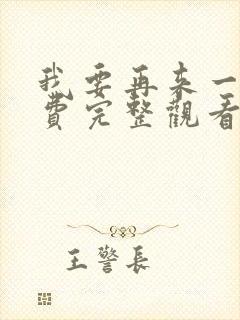 我要再来一
費完整觀看
王警長